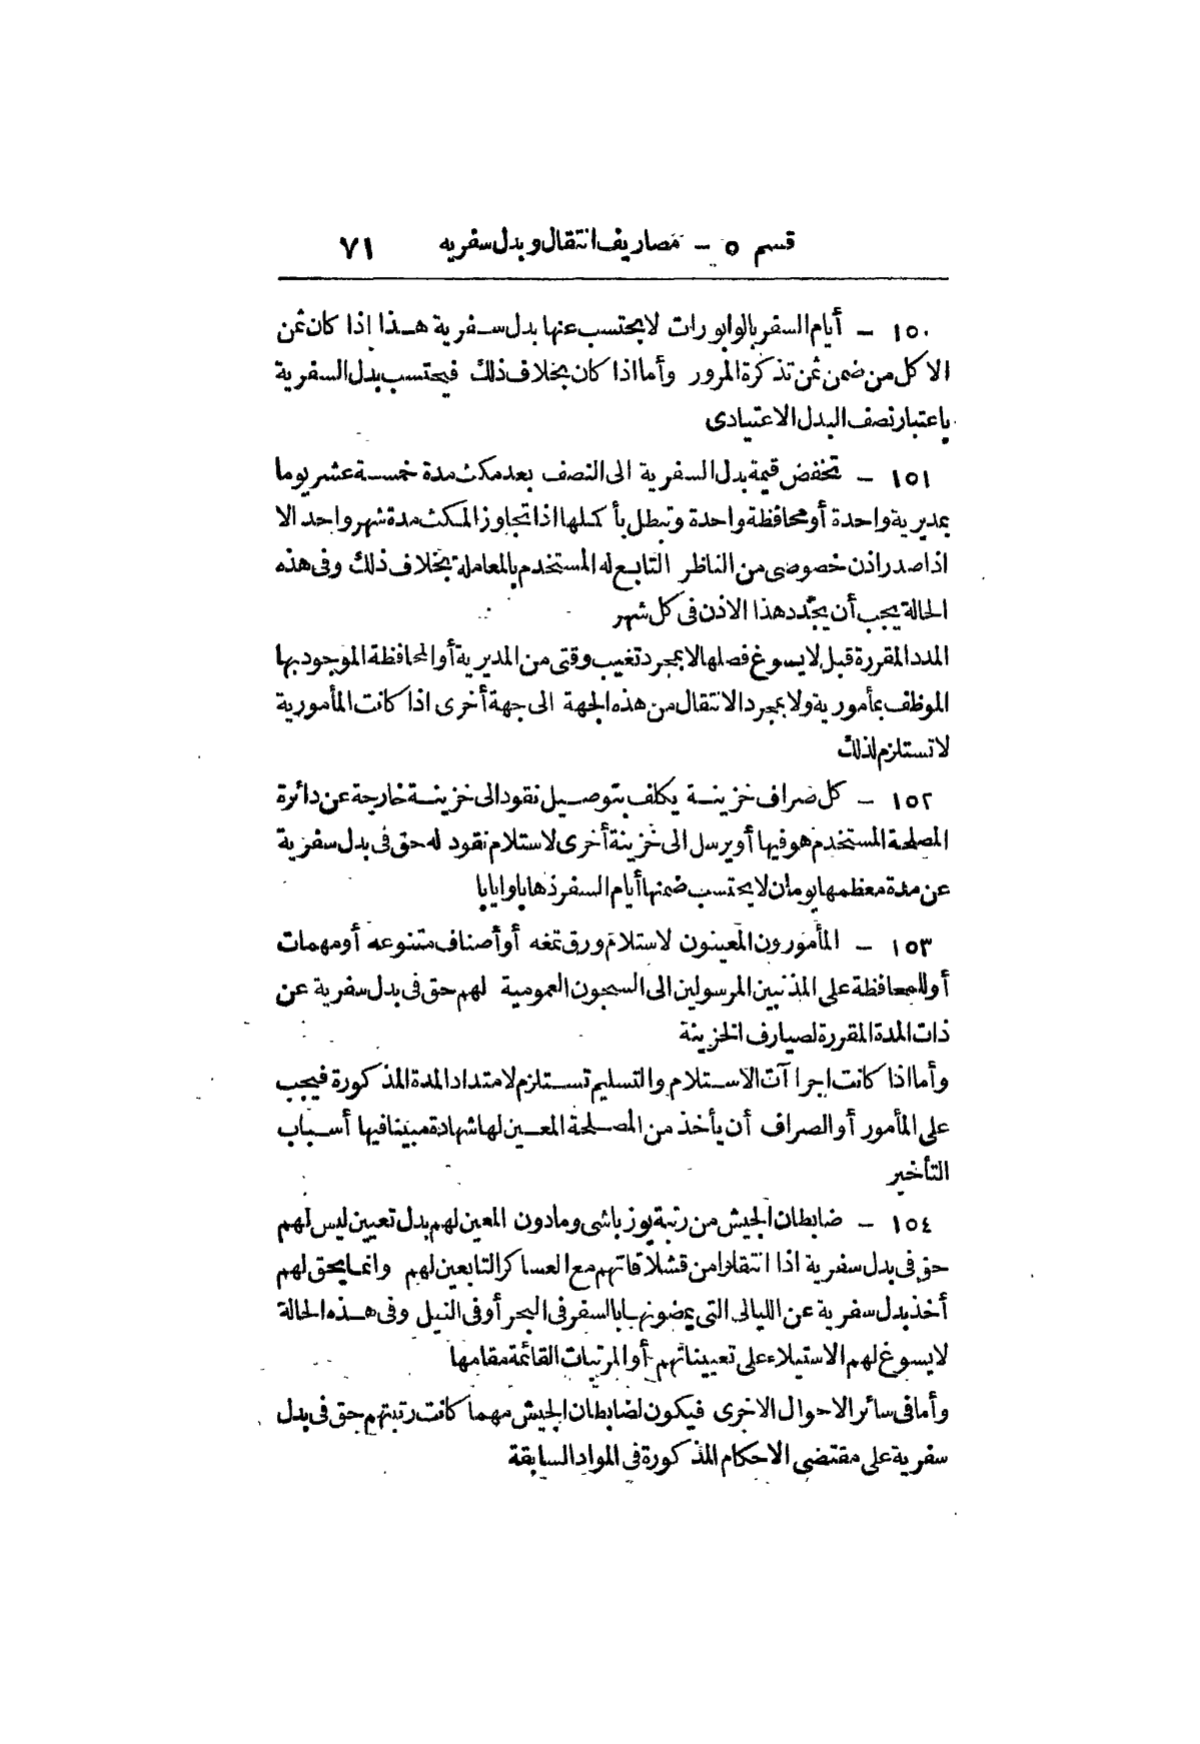 قسم ٥ – مصاريف انتقال وبدل سفريه ٧١
١٥٠ – أيام السفر بالوابورات لا يحتسب عنها بدل سفرية هذا إذا كان ثمن
الاكل من ضمن ثمن تذكرة المرور وأما اذا كان بخلاف ذلك فيحتسب بدل السفرية
باعتبار نصف البدل الاعتيادى
١٥١ – تخفض قيمة بدل السفرية الى النصف بعد مكث مدة خمسة عشر يوما
بمديرية واحدة أو محافظة واحدة وتبطل بأكملها اذا تجاوز المكث مدة شهر واحد الا
اذا صدر اذن خصوصى من الناظر التابع له المستخدم بالمعاملة بخلاف ذلك وفى هذه
الحالة يجب أن يجدّد هذا الاذن فى كل شهر
المدد المقررة قبل لا يسوغ فصلها الا بمجرد تغيب وقتى من المديرية أو المحافظة الموجود بها
الموظف بمأمورية ولا بمجرد الانتقال من هذه الجهة الى جهة أخرى اذا كانت المأمورية
لا تستلزم لذلك
١٥٢ – كل صراف خزينة يكلف بتوصيل نقود الى خزينة خارجة عن دائرة
المصلحة المستخدم هو فيها أو يرسل الى خزينة أخرى لاستلام نقود له حق فى بدل سفرية
عن مدة معظمها يومان لا يحتسب ضمنها أيام السفر ذهابا وايابا
١٥٣ – المأمورون المعينون لاستلام ورق تمغه أو أصناف متنوعه أو مهمات
أو للمحافظة على المذنبين المرسولين الى السجون العمومية لهم حق فى بدل سفرية عن
ذات المدة المقررة لصيارف الخزينة
وأما اذا كانت اجرا آت الاستلام والتسليم تستلزم لامتداد المدة المذكورة فيجب
على المأمور أو الصراف أن يأخذ من المصلحة المعين لها شهادة مبينا فيها أسباب
التأخير
١٥٤ – ضابطان الجيش من رتبة يوزباشى ومادون المعين لهم بدل تعيين ليس لهم
حق فى بدل سفرية اذا انتقلوا من قشلاقاتهم مع العساكر التابعين لهم وانما يحق لهم
أخذ بدل سفرية عن الليالى التى يمضونها بالسفر فى البحر أو فى النيل وفى هذه الحالة
لا يسوغ لهم الاستيلاء على تعييناتهم أو المرتبات القائمة مقامها
وأما فى سائر الاحوال الاخرى فيكون لضابطان الجيش مهما كانت رتبتهم حق فى بدل
سفرية على مقتضى الاحكام المذكورة فى المواد السابقة